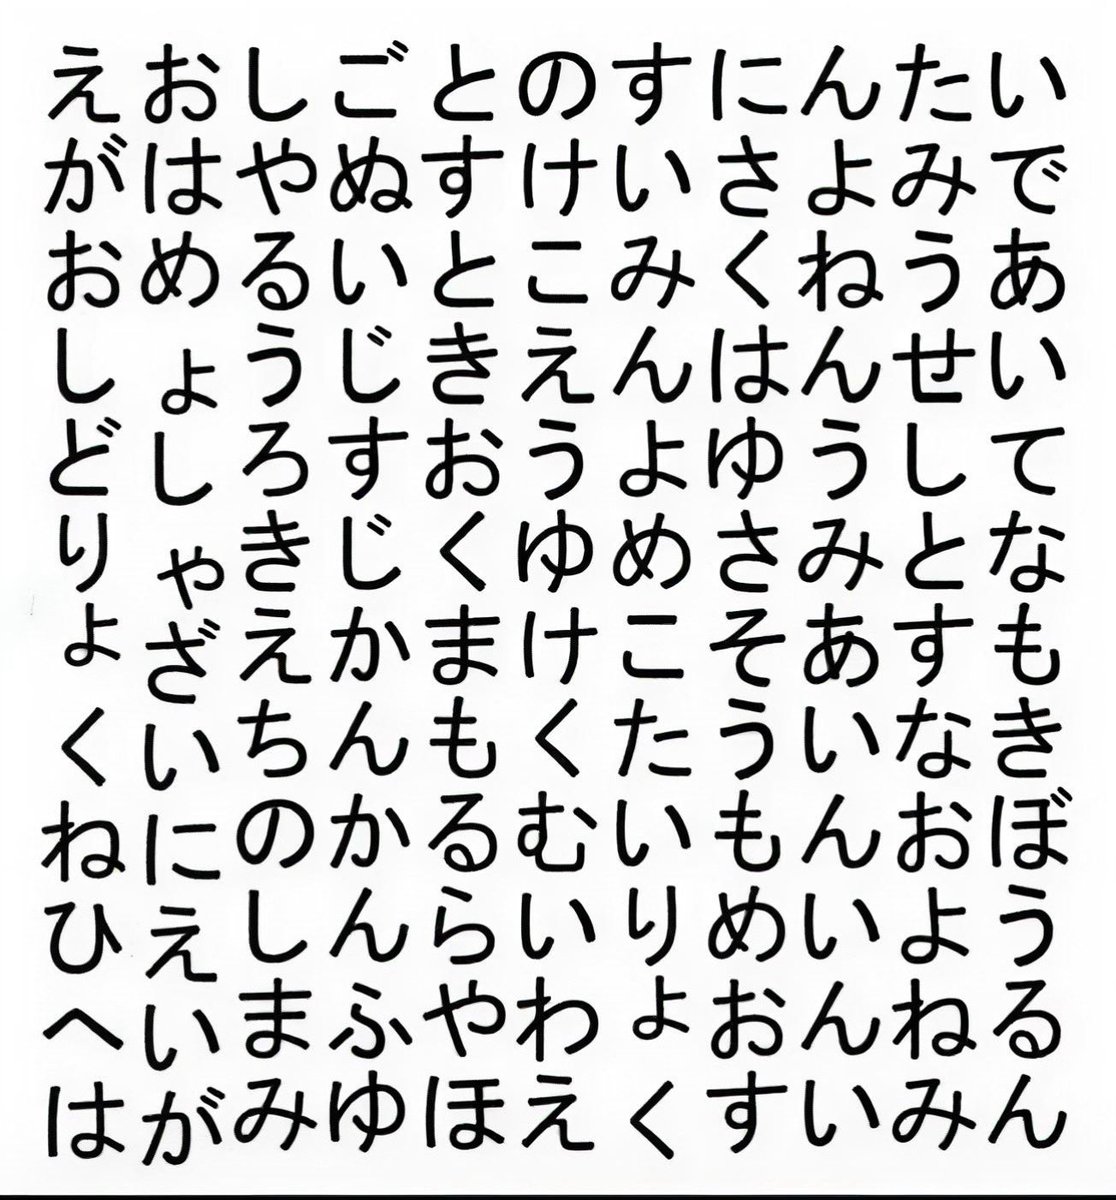 えおしごとのすにんたい
がはやぬすけいさよみで
おめるいとこみくねうあ
しょうじきえんはんせい
どしろすおうよゆうして
りゃきじくゆめさみとな
ょざえかまけこそあすも
くいちんもくたういなき
ねにのかるむいもんおぼ
ひえしんらいりめいよう
へいまふやわょおんねる
はがみゆほえくすいみん